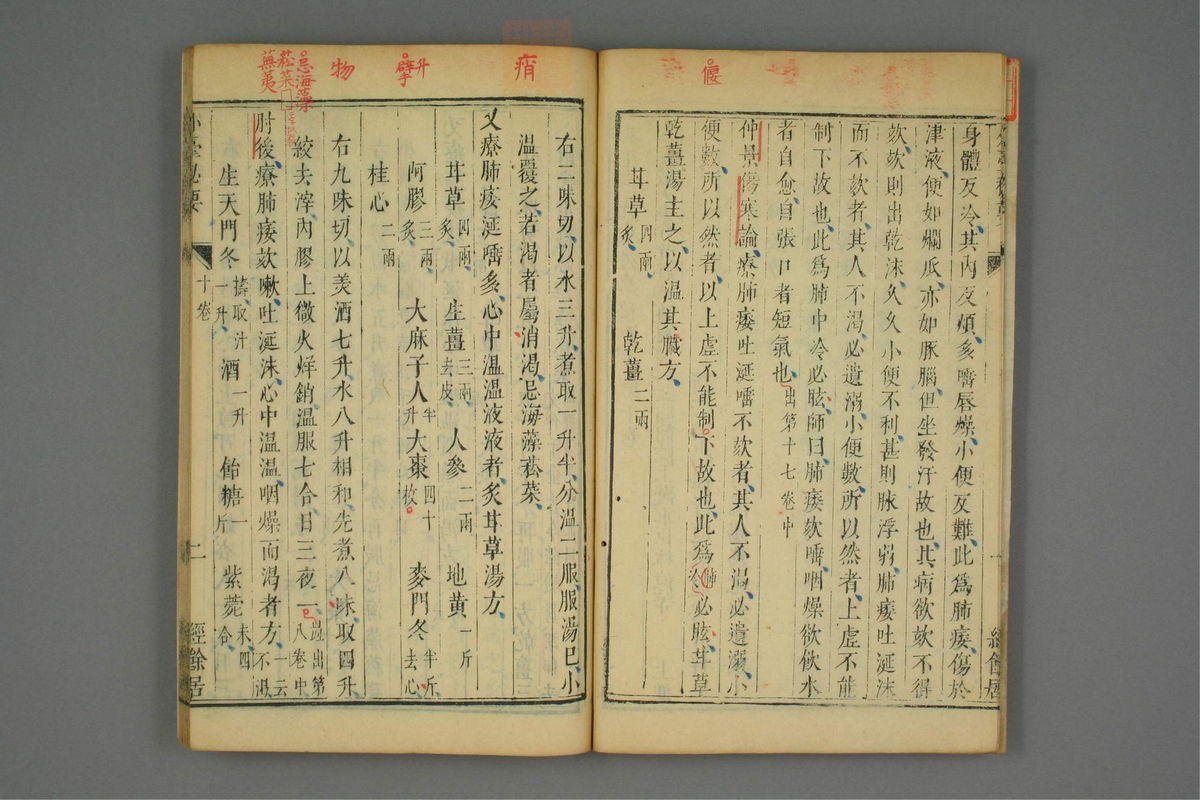 偃
身體反冷其內反煩多唾唇燥小便反難此為肺痿傷於
津液便如爛瓜亦如豚腦但坐發汗故也其病欲欬不得
欬欬則出乾沫久久小便不利甚則脉浮弱肺痿吐涎沫
而不欬者其人不渴必遺溺小便數所以然者上虛不能
制下故也此為肺中冷必眩師曰肺痿欬唾咽燥欲飲水
者自愈自張口者短氣也出第十七卷中
仲景傷寒論療肺痿吐涎唾不欬者其人不渴必遺溺小
便數所以然者以上虛不能制下故也此為肺冷必眩甘草
乾薑湯主之以溫其臟方
甘草四兩炙 乾薑二兩
痟
升
擘
物
忌海藻
菘菜
蕪荑
右二味切以水三升煮取一升半分溫二服服湯已小
溫覆之若渴者屬消渴忌海藻菘菜
又療肺痿涎唾多心中溫溫液液者炙甘草湯方
甘草四兩炙 生薑三兩去皮 人參二兩 地黃一斤
阿膠三兩炙 大麻子人半升 大棗四十枚 麥門冬半斤去心
桂心二兩
右九味切以美酒七升水八升相和先煮八味取四升
絞去滓內膠上微火烊銷溫服七合日三夜一並出第八卷中
肘後療肺痿欬嗽吐涎沫心中溫溫咽燥而渴者方一云不渴
生天門冬擣取汁一升 酒一升 飴糖一斤 紫菀末四合
外臺秘要
十卷
二
經餘居